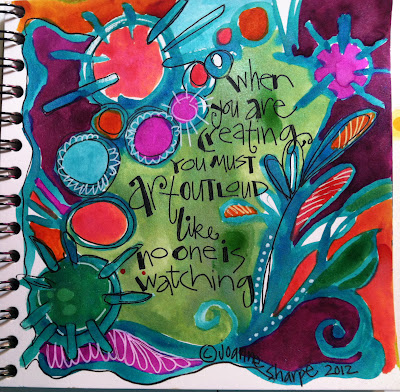 when
you are
creating,
you must
art out loud
like
no one is
watching
© joanne
sharpe
2012